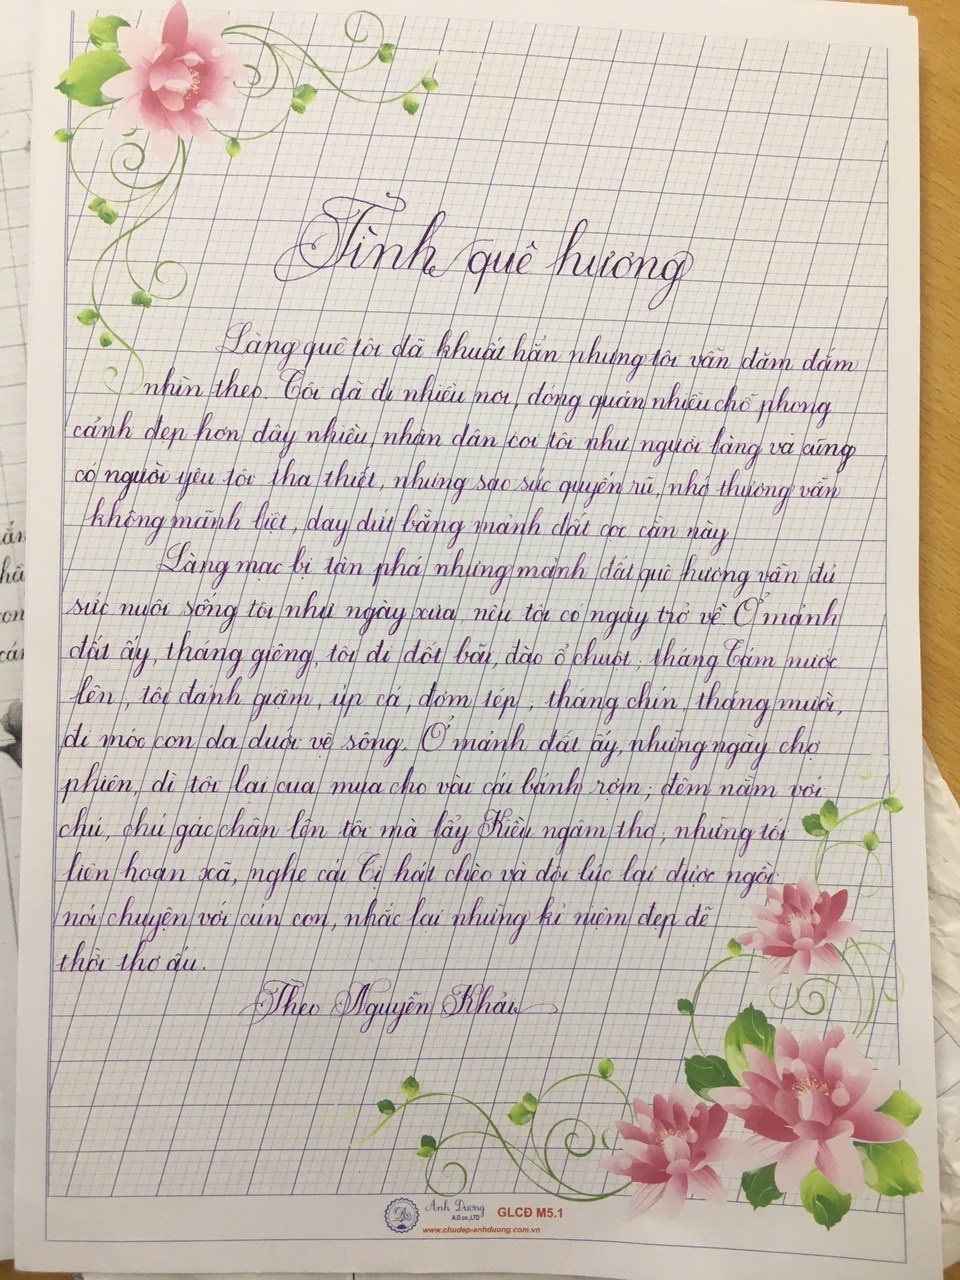 Tình quê hương
Làng quê tôi đã khuất hẳn nhưng tôi vẫn đăm đắm
nhìn theo. Tôi đã đi nhiều nơi, đóng quân nhiều chỗ phong
cảnh đẹp hơn đây nhiều, nhân dân coi tôi như người làng và cũng
có người yêu tôi tha thiết, nhưng sao sức quyến rũ, nhớ thương vẫn
không mãnh liệt, day dứt bằng mảnh đất cọc cằn này
Làng mạc bị tàn phá nhưng mảnh đất quê hương vẫn đủ
sức nuôi sống tôi như ngày xưa, nếu tôi có ngày trở về. Ở mảnh
đất ấy, tháng giêng, tôi đi đốt bãi, đào ổ chuột; tháng Tám nước
lên, tôi đánh giậm, úp cá, đơm tép; tháng chín, tháng mười,
đi móc con da dưới vệ sông. Ở mảnh đất ấy, những ngày chợ
phiên, dì tôi lại cua mua cho vài cái bánh rợm; đêm nằm với
chú, chú gác chân lên tôi mà lẩy Kiều ngâm thơ; những tối
liên hoan xã, nghe cái Tị hát chèo và đôi lúc lại được ngồi
nói chuyện với cún con, nhắc lại những kỉ niệm đẹp đẽ
thời thơ ấu.
Theo Nguyễn Khải
Anh Dương
A.D co.,LTD
GLCĐ M5.1
www.chudep-anhduong.com.vn